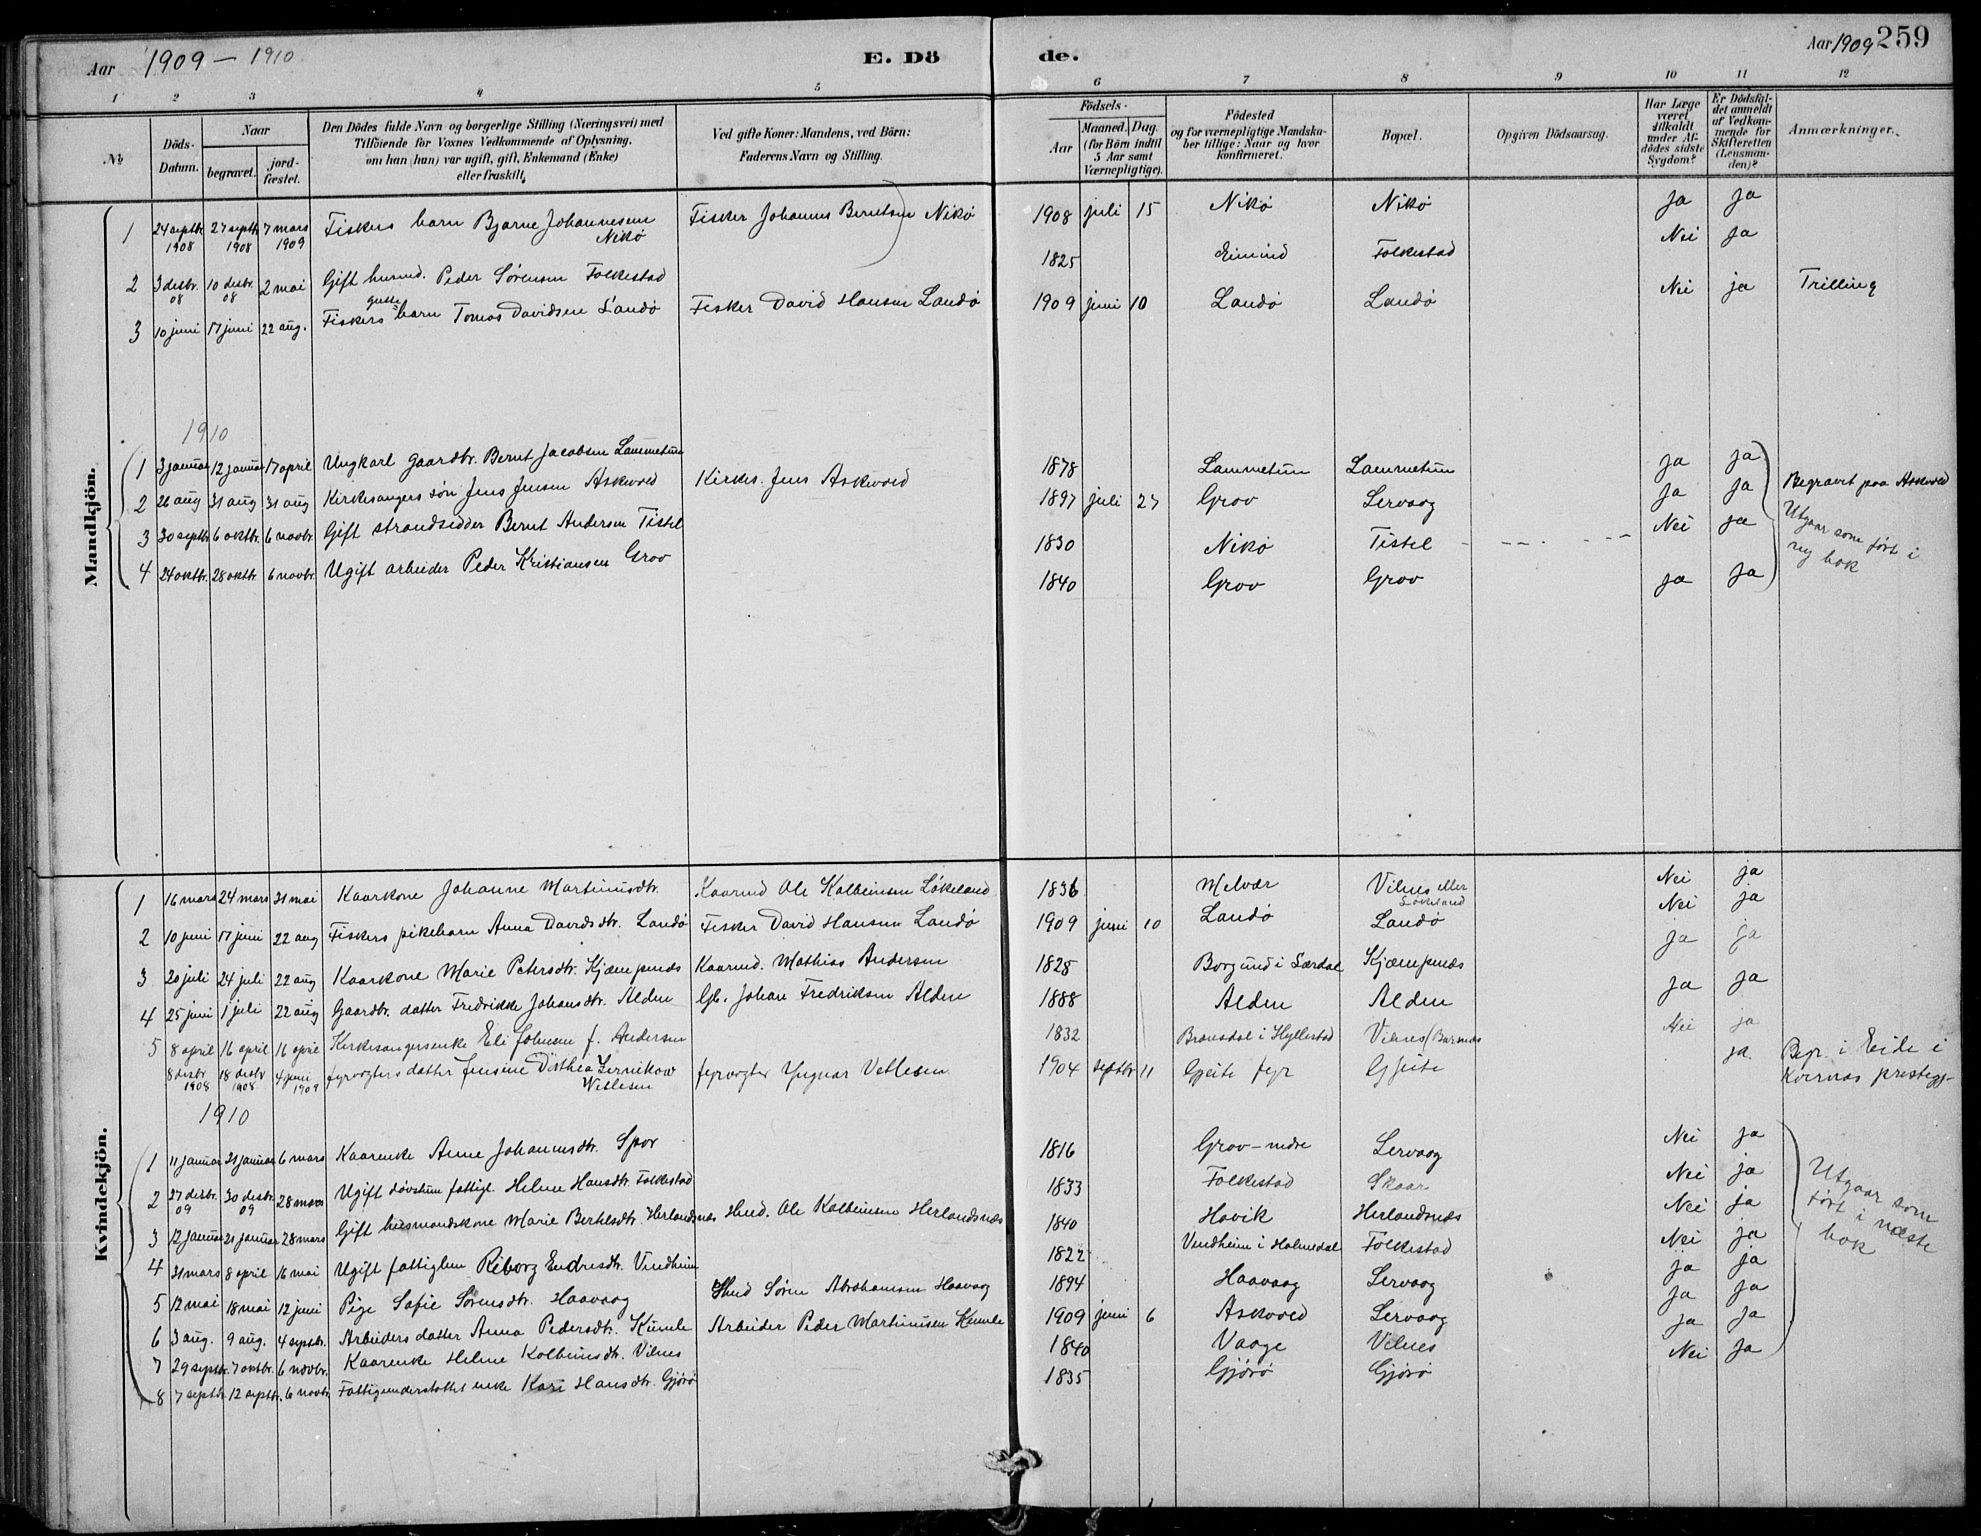 Aar 1909 — 1910
E. Dö
de.
Aar 1909 259
1 2 3 4 5 6 7 8 9 10 11 12
No
Döds-Datum.
Naar
begravet.
jordfæstet.
Den Dödes fulde Navn og borgerlige Stilling (Næringsvei) med
Tilföiende for Voxnes Vedkommende af Oplysning,
om han (hun) var ugift, gift, Enkemand (Enke)
eller fraskilt.
Ved gifte Koner: Mandens, ved Börn:
Faderens Navn og Stilling.
Födsels-
Aar
Maaned. Dag.
(for Börn indtil
5 Aar samt
Værnepligtige).
Födested
og for værnepligtige Mandska-
ber tillige: Naar og hvor
konfirmeret.
Bopæl.
Opgiven Dödsaarsag.
Har Læge
været
tilkaldt
under Af-
dödes sidste
Sygdom?
Er Dödsfal-
det anmeldt
af Vedkom-
mende for
Skifteretten
(Lensman-
den)?
Anmærkninger.
Mandkjön.
1 24 septbr. 1908 27 septbr. 1908 7 mars 1909 Fiskers barn Bjarne Johannesen Nikø Fisker Johannes Berntsen Nikø 1908 juli 15 Nikø Nikø Ja Ja
2 3 desbr. 08 10 desbr. 08 2 mai Gift husmd. Peder Sørensen Folkestad 1825 Folkestad Nei Ja
3 10 juni 17 juni 22 aug. Fiskers gutte barn Tomas Davidsen Landø Fisker David Hansen Landø 1909 juni 10 Landø Landø Nei ja Trilling
1910
1 3 januar 12 januar 17 april Ungkarl gaardbr. Bernt Jacobsen Lammetun 1878 Lammetun Lammetun Ja Ja
2 26 aug 31 aug 31 aug Kirkesangers søn Jens Jensen Askvold Kirkes. Jens Askvold 1897 juli 27 Grov Lervaag Ja Ja Begravet paa Askvold
3 30 septbr. 6 oktbr. 6 novbr. Gift strandsidder Bernt Andersen Tistel 1830 Nikø Tistel Nei ja
4 24 oktbr. 28 oktbr. 6 novbr. Ugift arbeider Peder Kristiansen Grov 1840 Grov Grov ja Ja
Utgaar som ført i
ny bok
Kvindekjön.
1 16 mars 24 mars 31 mai Kaarkone Johanne Martinusdtr. Kaarmd Ole Kolbeinsen Løkeland 1836 Melvær Vilnes eller Løkeland Nei ja
2 10 juni 17 juni 22 aug Fiskers pikebarn Anna Davidsdtr. Landø Fisker David Hansen Landø 1909 juni 10 Landø Landø Nei ja
3 20 juli 24 juli 22 aug Kaarkone Marie Petersdtr. Kjæmpenæs Kaarmd. Mathias Andersen 1828 Borgund i Lærdal Kjæmpenæs ja ja
4 25 juni 1 juli 22 aug Gaardbr. datter Fredrikke Johansdtr. Alden Gb. Johan Fredriksen Alden 1888 Alden Alden ja ja
5 8 april 16 april 16 april Kirkesangersenke Eli Johnsen f. Andersen 1832 i Hyllestad Vilnes Nei ja
8 desbr 1908 18 desbr 1908 4 juni 1909 fyrvogters datter Jensine Dorthea Vetlesen fyrvogter Yngvar Vetlesen 1904 septbr 11 Gjeite fyr Gjeite ja. Begr. i Eide i
Kvernæs prestegj.
1910
1 11 januar 21 januar 6 mars Kaarenke Anne Johannesdtr. 1816 Grov-nedre Lervaag Nei ja
2 27 desbr. 09 30 desbr. 09 28 mars Ugift døvstum fattigl. Helene Hansdtr. Folkestad 1833 Folkestad Skaar Nei ja
3 12 januar 21 januar 28 mars Gift husmandskone Marie Bertelsdtr. Herlandsnæs Hmd. Ole Kolbeinsen Herlandsnæs 1840 Havik Herlandsnæs Nei ja
4 31 mars 8 april 16 mai Ugift fattiglem Riborg Endresdtr. Vindheim 1822 Vindheim i Holmedal Folkestad Nei ja
5 12 mai 18 mai 12 juni Pige Sofie Sørensdtr. Haavaag Hmd Søren Abrahamsen Haavaag 1894 Haavaag Lervaag ja ja
6 3 aug. 9 aug. 4 septbr. Arbeiders datter Anna Pedersdtr. Kumle Arbeider Peder Martinusen Kumle 1909 juni 6 Askvold Lervaag ja ja
7 29 septbr. 7 oktbr. 6 novbr. Kaarenke Helene Kolbeinsdtr. Vilnes 1840 Vaage Vilnes ja ja
8 7 septbr. 12 septbr. 6 novbr. Fattigunderstøttet enke Kari Hansdtr. Gjørø 1835 Gjørø Gjørø Nei ja
Utgaar som
ført i næste
bok